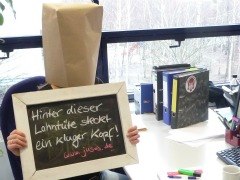 Hinter dieser
Lohntüte steckt
ein kluger Kopf!
www.jusos.de